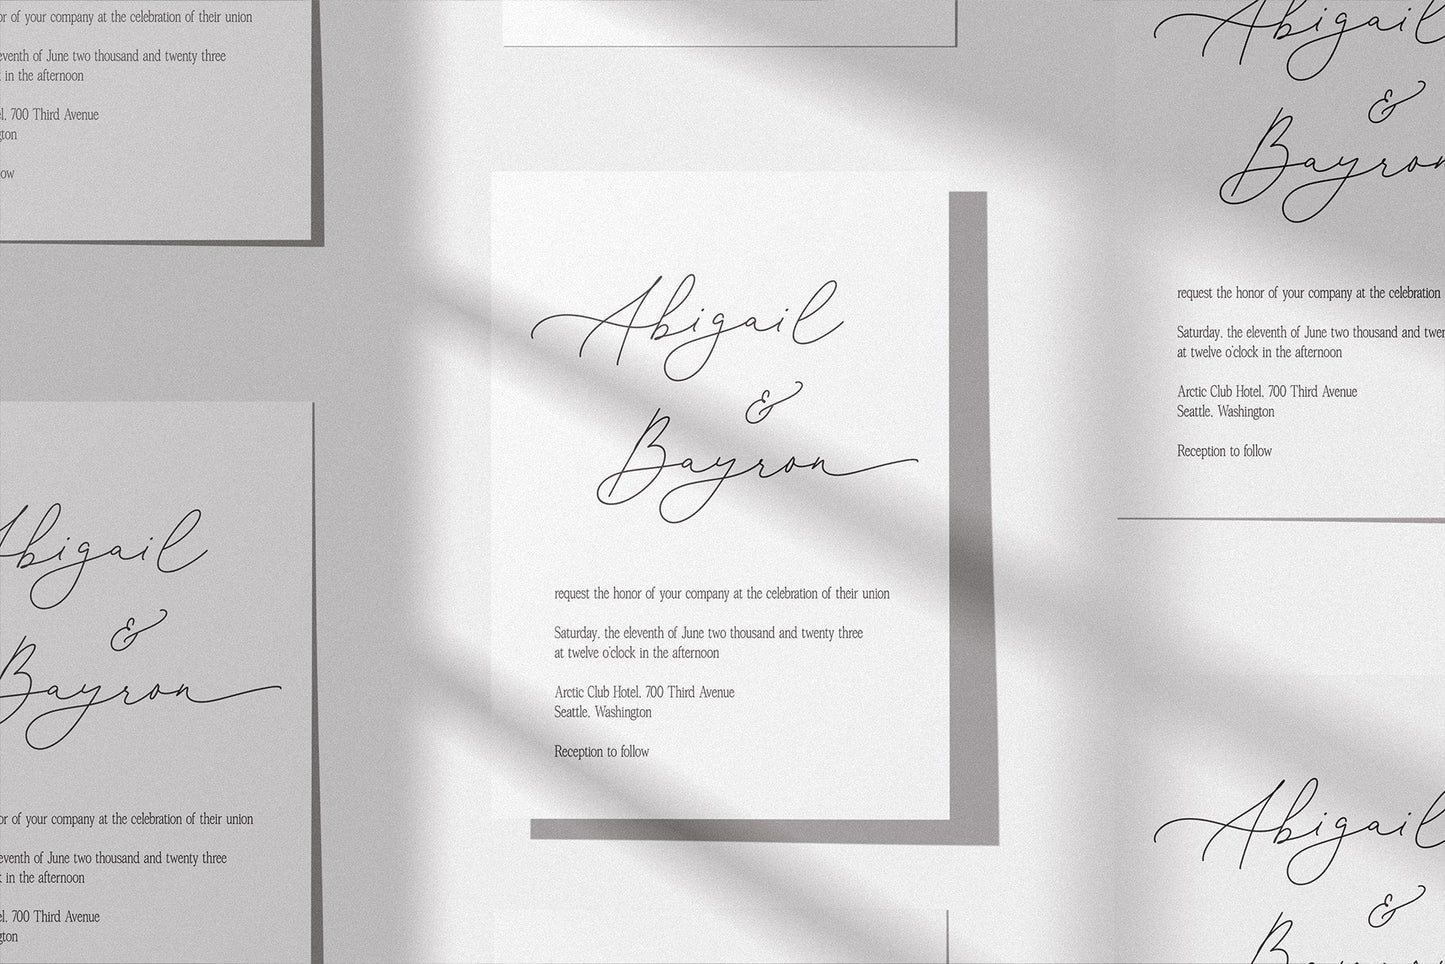 or of your company at the celebration of their union
eventh of June two thousand and twenty three
in the afternoon
700 Third Avenue
Abigail
&
Bayron
request the honor of your company at the celebration of their union
Saturday, the eleventh of June two thousand and twenty three
at twelve o'clock in the afternoon
Arctic Club Hotel, 700 Third Avenue
Seattle, Washington
Reception to follow
Abigail
&
Bayron
request the honor of your company at the celebration
Saturday, the eleventh of June two thousand and
at twelve o'clock in the afternoon
Arctic Club Hotel, 700 Third Avenue
Seattle, Washington
Reception to follow
Abigail
&
Bayron
of your company at the celebration of their union
eventh of June two thousand and twenty three
in the afternoon
700 Third Avenue
Abigail
&